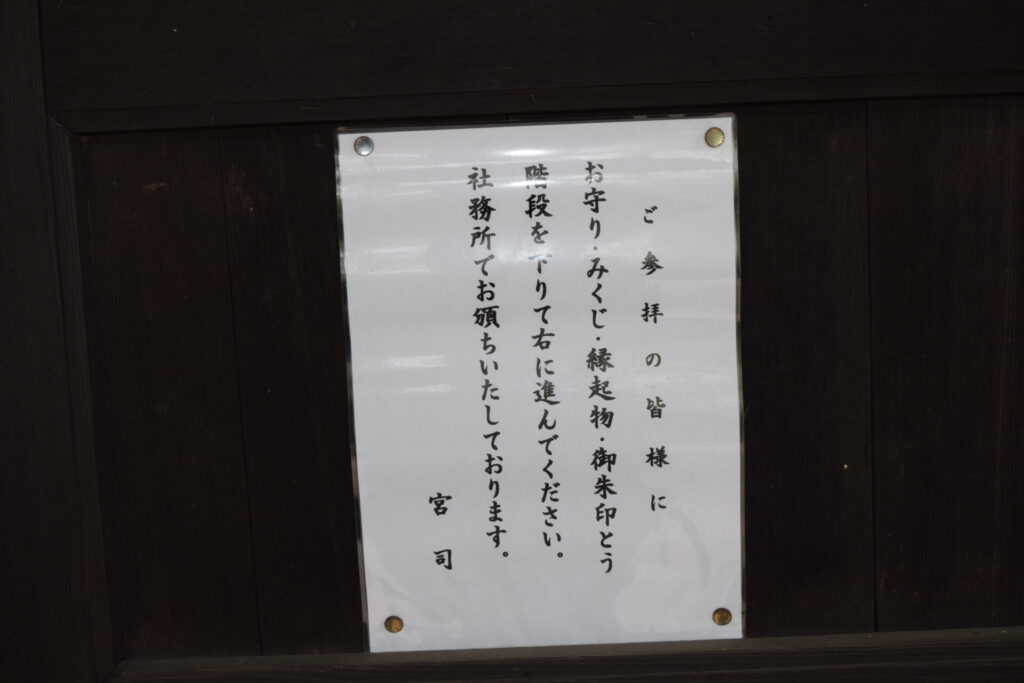 ご参拝の皆様に
お守り・みくじ・縁起物・御朱印とう
階段を下りて右に進んでください。
社務所でお頒ちいたしております。
宮司